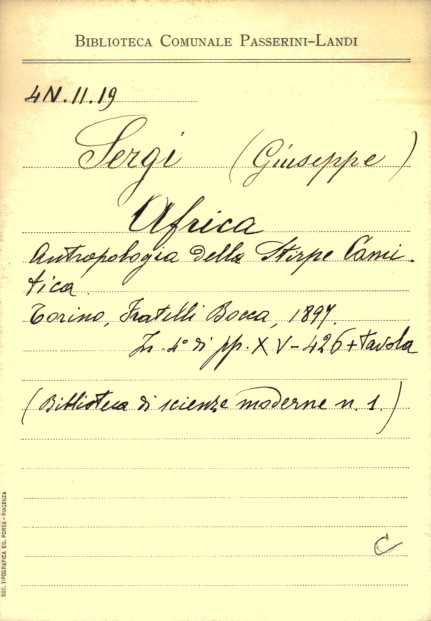 BIBLIOTECA COMUNALE PASSERINI-LANDI
4N.11.19
Sergi (Giuseppe)
Africa
Antropologia della Stirpe Cami-
tica.
Torino, Fratelli Bocca, 1897.
In-4° di pp. XV-426+tavola
(Biblioteca di scienze moderne n. 1.)
C
SOC. TIPOGRAFICA ED. PORTA - PIACENZA